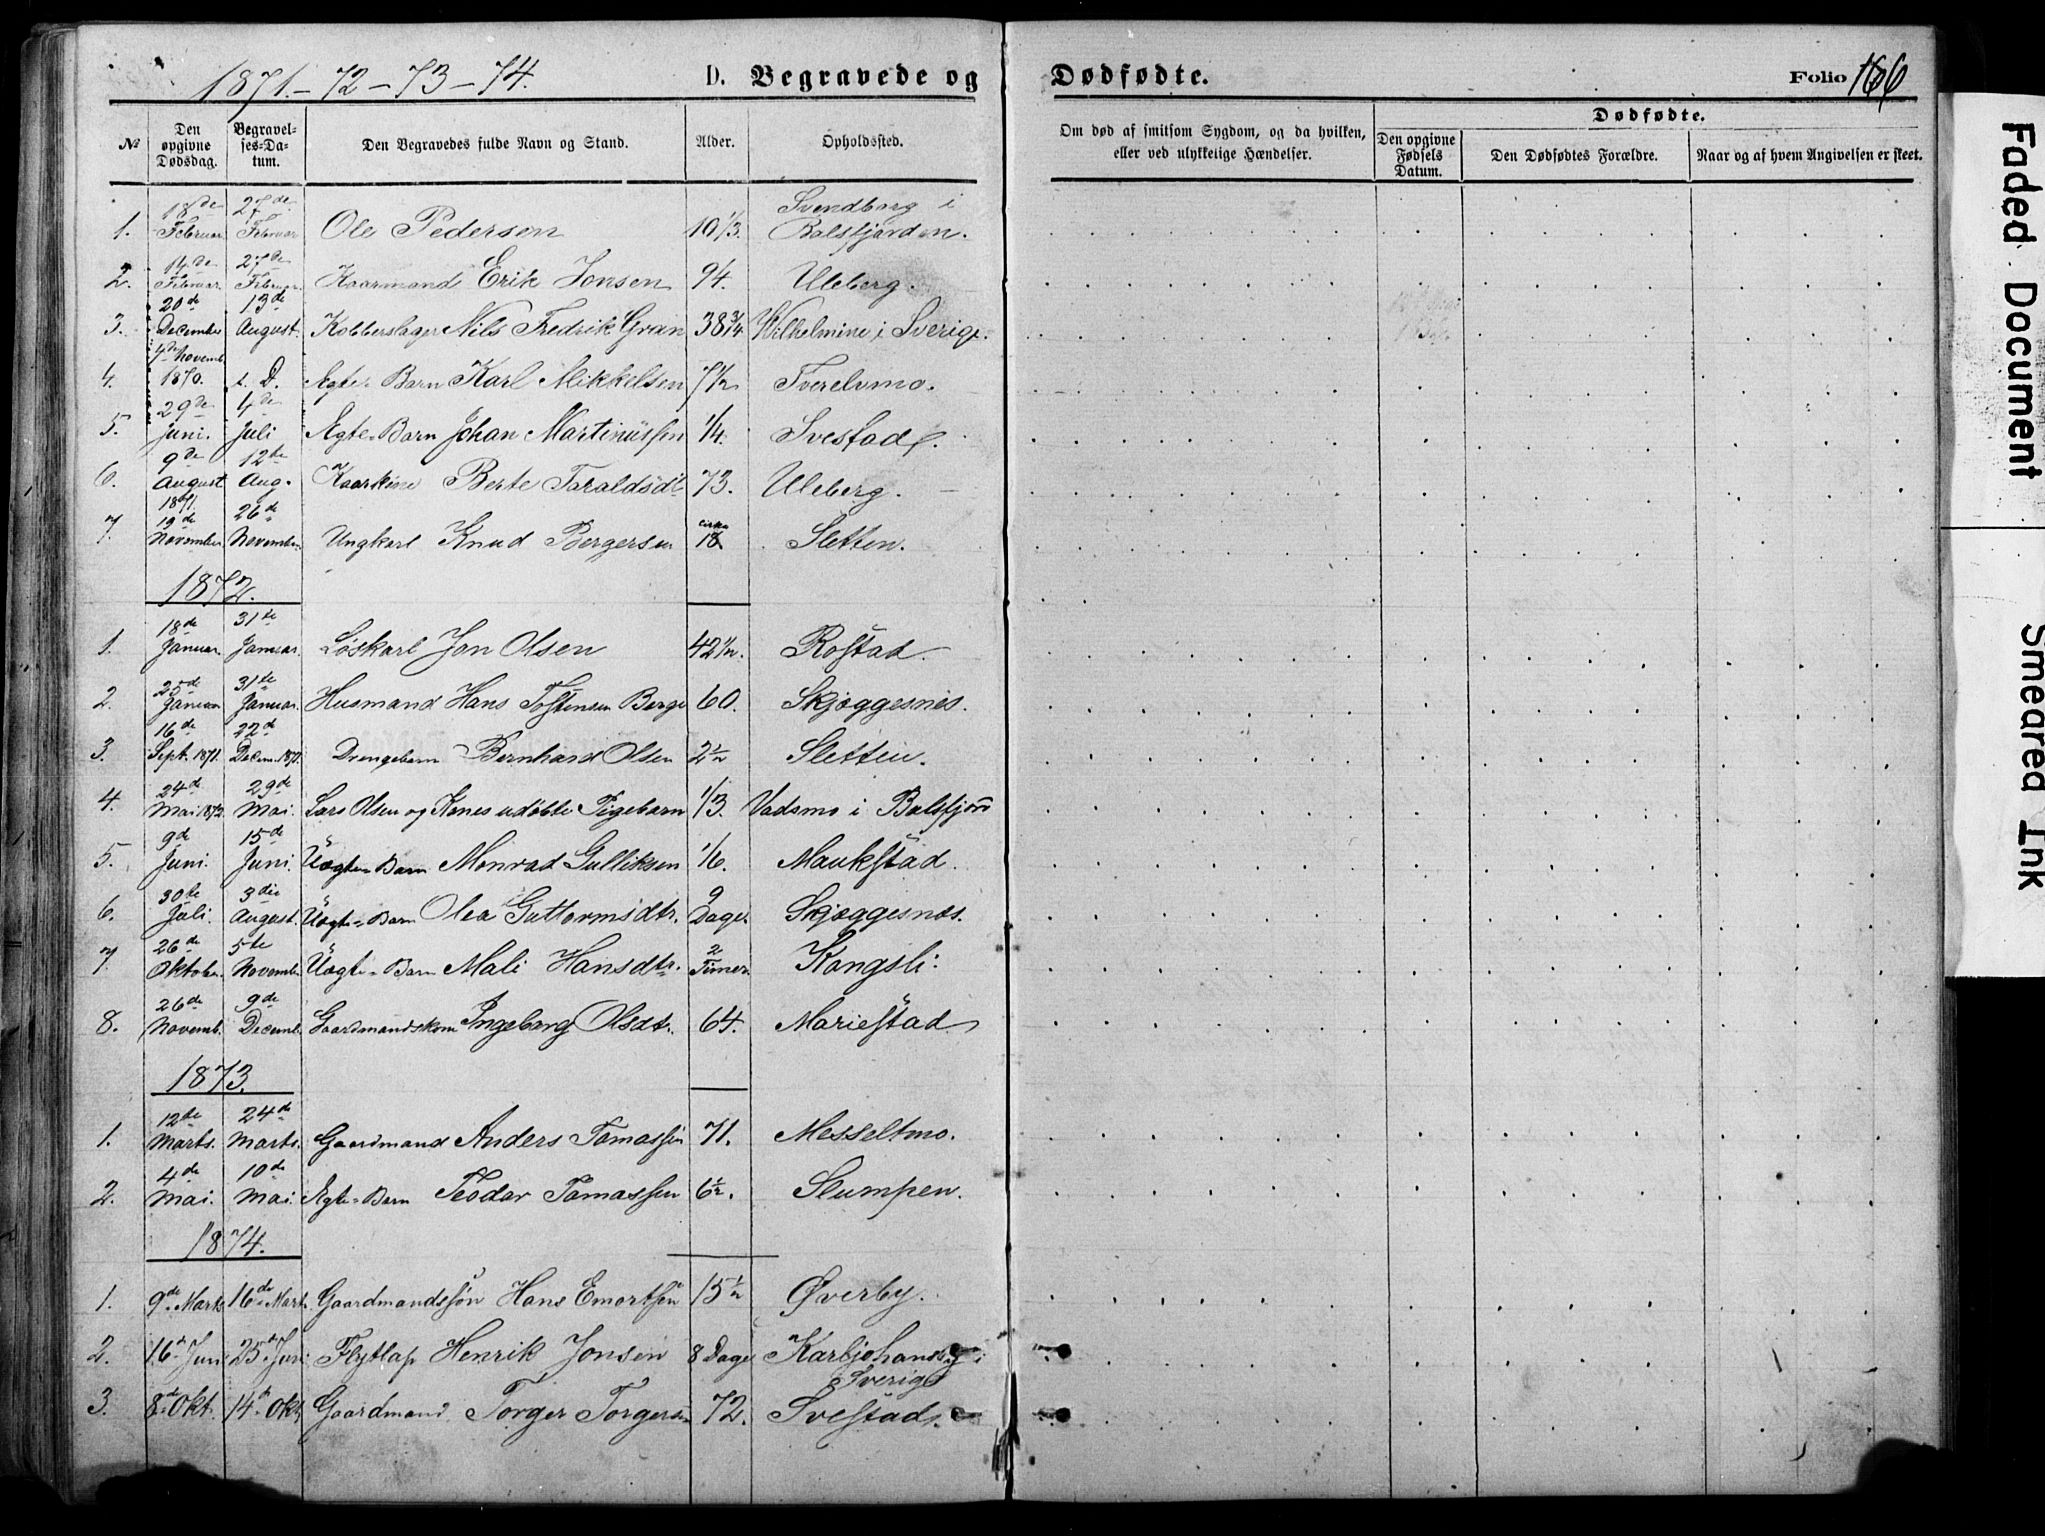 1871.-72-73-74. D. Begravede og Dødfødte. Folio 166
№ Den opgivne Dødsdag. Begravelses-Datum. Den Begravedes fulde Navn og Stand. Alder. Opholdssted. Om død af smitsom Sygdom, og da hvilken, eller ved ulykkelige Hændelser. Dødfødte. Den opgivne Fødsels Datum. Den Dødfødtes Forældre. Naar og af hvem Angivelsen er skeet.
1. 18de Februar 27de Februar Ole Pedersen 10 1/3. Svendborg i Balsfjorden.
2. 14de Februar. 27de Februar. Kaarmand Erik Jonsen 94. Uleberg.
3. 20de December 13de August. Kobberslager Nils Fredrik Gran 38 3/4 Wilhelmine i Sverige.
4. 4de Novemb. 1870. s. D. Ægte-Barn Karl Mikkelsen 7 1/2 Tverelvmo.
5. 29de Juni. 4de Juli Ægte-Barn Johan Martinussen 1/4. Svestad.
6. 9de August 12te Aug. Kaarkone Berte Taraldsdt 73. Uleberg.
7. 1871. 19de November 26de November Ungkarl Knud Bergersen cirka 18 Sletten.
1872.
1. 18de Januar. 31te Januar. Løskarl Jon Olsen 42 1/2. Rostad.
2. 25de Januar 31te Januar. Husmand Hans Tostensen Berge 60. Skjæggesnes.
3. 16de Sept. 1871. 22de Decem. 1871. Drengebarn Bernhard Olsen 2 1/2 Sletten.
4. 24de Mai 1872. 29de Mai. Lars Olsen og Kones udøbte Pigebarn 1/3. Vadsmo i Balsfjord
5. 9de Juni. 15de Juni. Uægte-Barn Monrad Gulliksen 1/6. Maukstad.
6. 30te Juli. 3die August. Uægte-Barn Olea Guttormsdtr. 9 Dage. Skjæggesnæs.
7. 26de Oktober. 5te Novemb. Uægte-Barn Mali Hansdtr. 2 Timer. Kongsli.
8. 26de Novemb. 9de Decemb. Gaardmandskone Ingeborg Olsdtr. 64. Mariestad
1873.
1. 12te Marts. 24de Marts. Gaardmand Anders Tomassen 71. Messeltmo.
2. 4de Mai. 10de Mai. Ægte-Barn Teodor Tomassen 6 1/2. Slumpen.
1874.
1. 9de Marts 16de Marts Gaardmandssøn Hans Emortsen 15 1/2 Øverby.
2. 16de Juni 25de Juni Flytlap Henrik Jonsen 8 Dage Karljohans i Sverige
3. 8de Okt. 14de Okt. Gaardmand Torger Torgersen 72. Svestad.
Faded Document
Smeared Ink